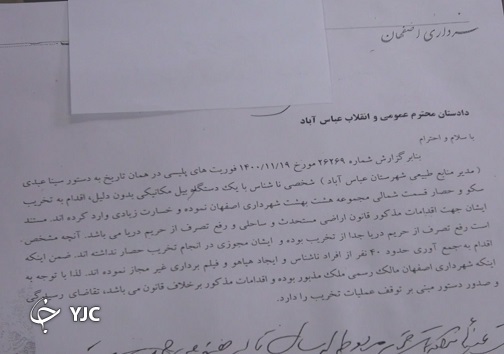 شهرداری اصفهان
دادستان محترم عمومی و انقلاب عباس آباد
با سلام و احترام
بنابر گزارش شماره ۲۶۲۶۹ مورخ ۱۴۰۰/۱۱/۱۹ فوریت های پلیسی در همان تاریخ به دستور سینا عبدی
(مدیر منابع طبیعی شهرستان عباس آباد) شخصی ناشناس با یک دستگاه بیل مکانیکی بدون دلیل، اقدام به تخریب
سکو و حصار قسمت شمالی مجموعه هشت بهشت شهرداری اصفهان نموده و خسارت زیادی وارد کرده اند. مستند
ایشان جهت اقدامات مذکور قانون اراضی مستحدث و ساحلی و رفع تصرف از حریم دریا می باشد. آنچه مشخص
است رفع تصرف از حریم دریا جدا از تخریب بوده و ایشان مجوزی در انجام تخریب حصار نداشته اند. ضمن اینکه
اقدام به جمع آوری حدود ۴۰ نفر از افراد ناشناس و ایجاد هیاهو و فیلم برداری غیر مجاز نموده اند. لذا با توجه به
اینکه شهرداری اصفهان مالک رسمی ملک مذبور بوده و اقدامات مذکور برخلاف قانون می باشد، تقاضای رسیدگی
و صدور دستور مبنی بر توقف عملیات تخریب را دارد.
YJC